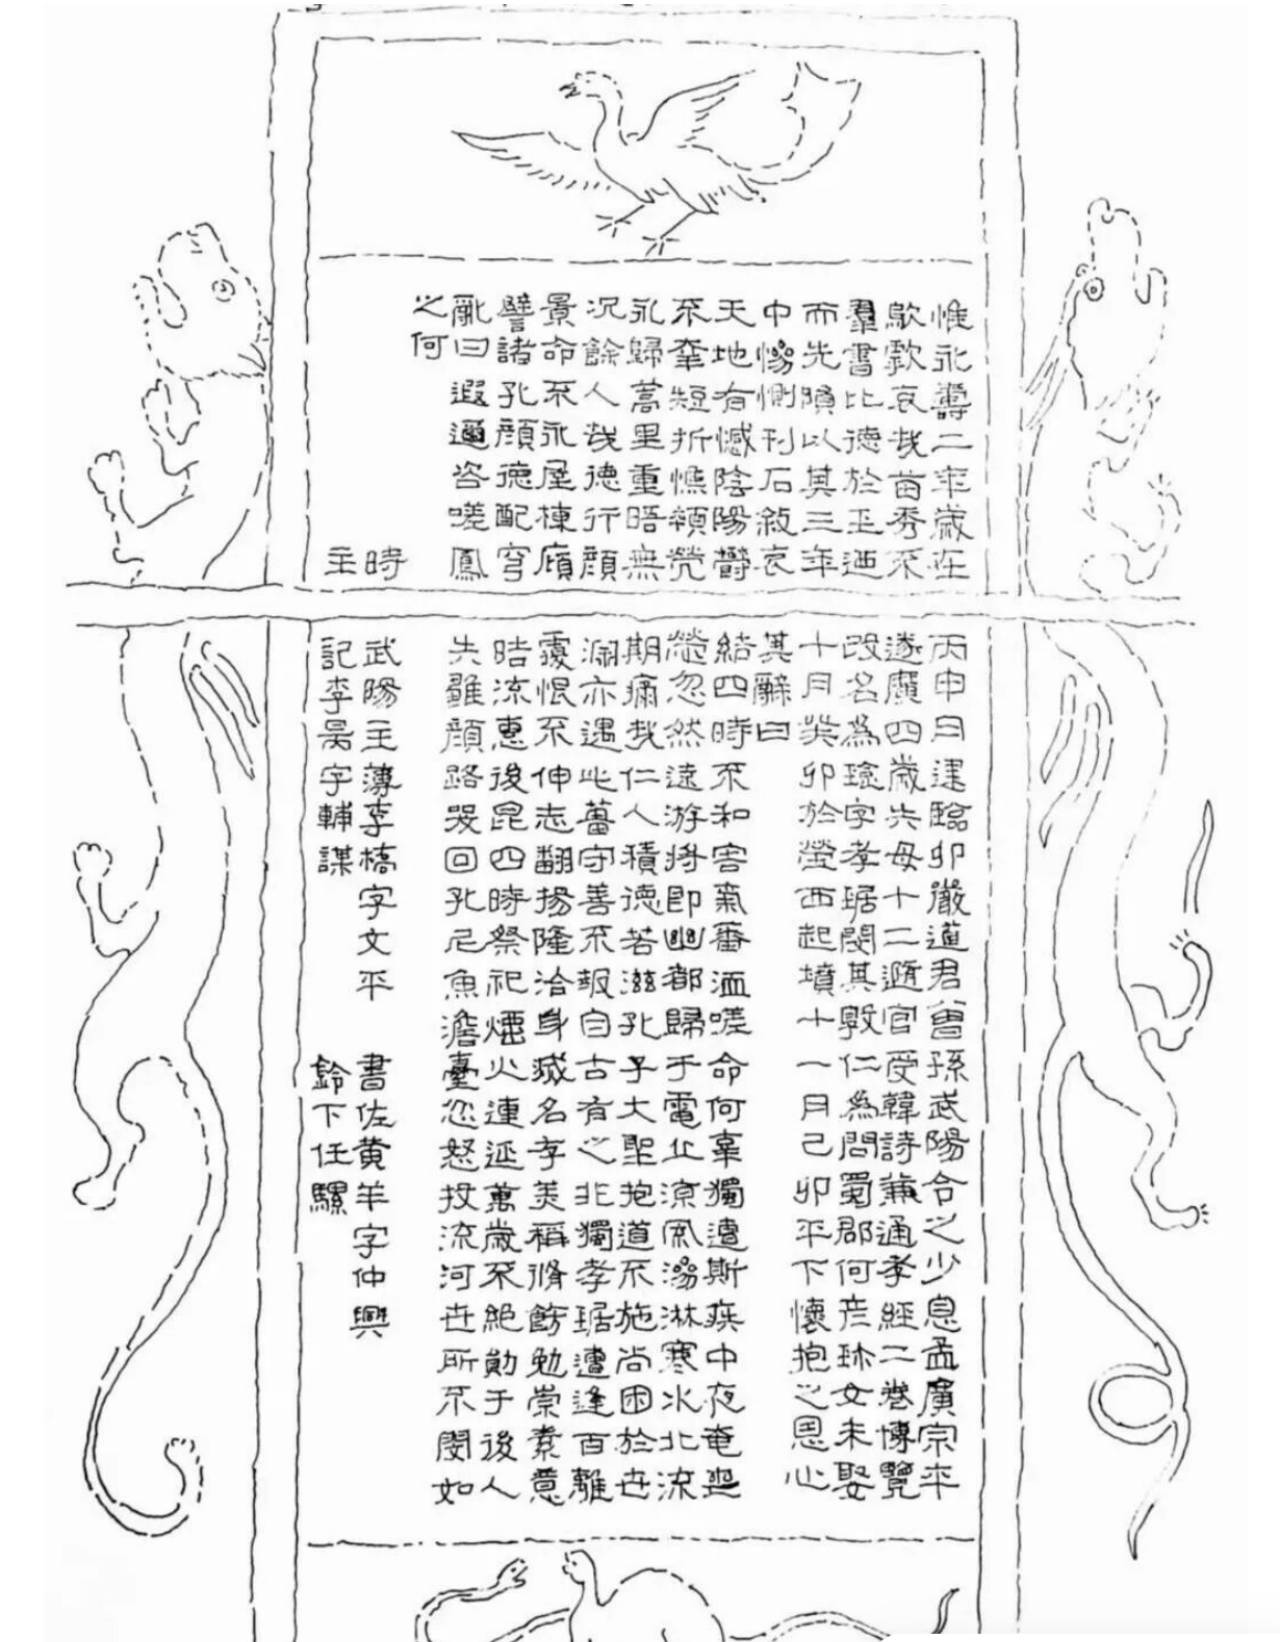 惟永壽二年歲在丙申月建臨卯嚴道君曾孫武陽令之少息孟廣宗卒
歔欷哀哉苗秀不遂廣四歲失母十二隨官受韓詩兼通孝經二卷博覽
羣書比德於玉迺改名為琁字孝琚閔其敦仁為問蜀郡何彥珍女未娶
而先隕以其三年十月癸卯於塋西起墳十一月己卯平下懷抱之恩心
中慘惻刊石敘哀其辭曰
天地有憾陰陽鬱結四時不和害氣蕃溢嗟命何辜獨遭斯疾中夜奄喪
不幸短折憔顇煢熒忽然遠游將即幽都歸于電丘涼風滲淋寒水北流
永歸蒿里重晤無期痛哉仁人積德若滋孔子大聖抱道不施尚困於世
況餘人哉德行顏淵亦遇此菑守善不報自古有之非獨孝琚遭逢百離
景命不永屋棟傾覆恨不伸志翻揚隆洽身滅名存美稱脩飭勉崇素意
譬諸孔顏德配穹晧流惠後昆四時祭祀煙火連延萬歲不絕勖于後人
亂曰遐邇咨嗟鳳失雛顏路哭回孔尼魚澹臺忿怒投流河世所不閔如
之何
時武陽主簿李橋字文平書佐黃羊字仲興
主記李昺字輔謀鈴下任騾